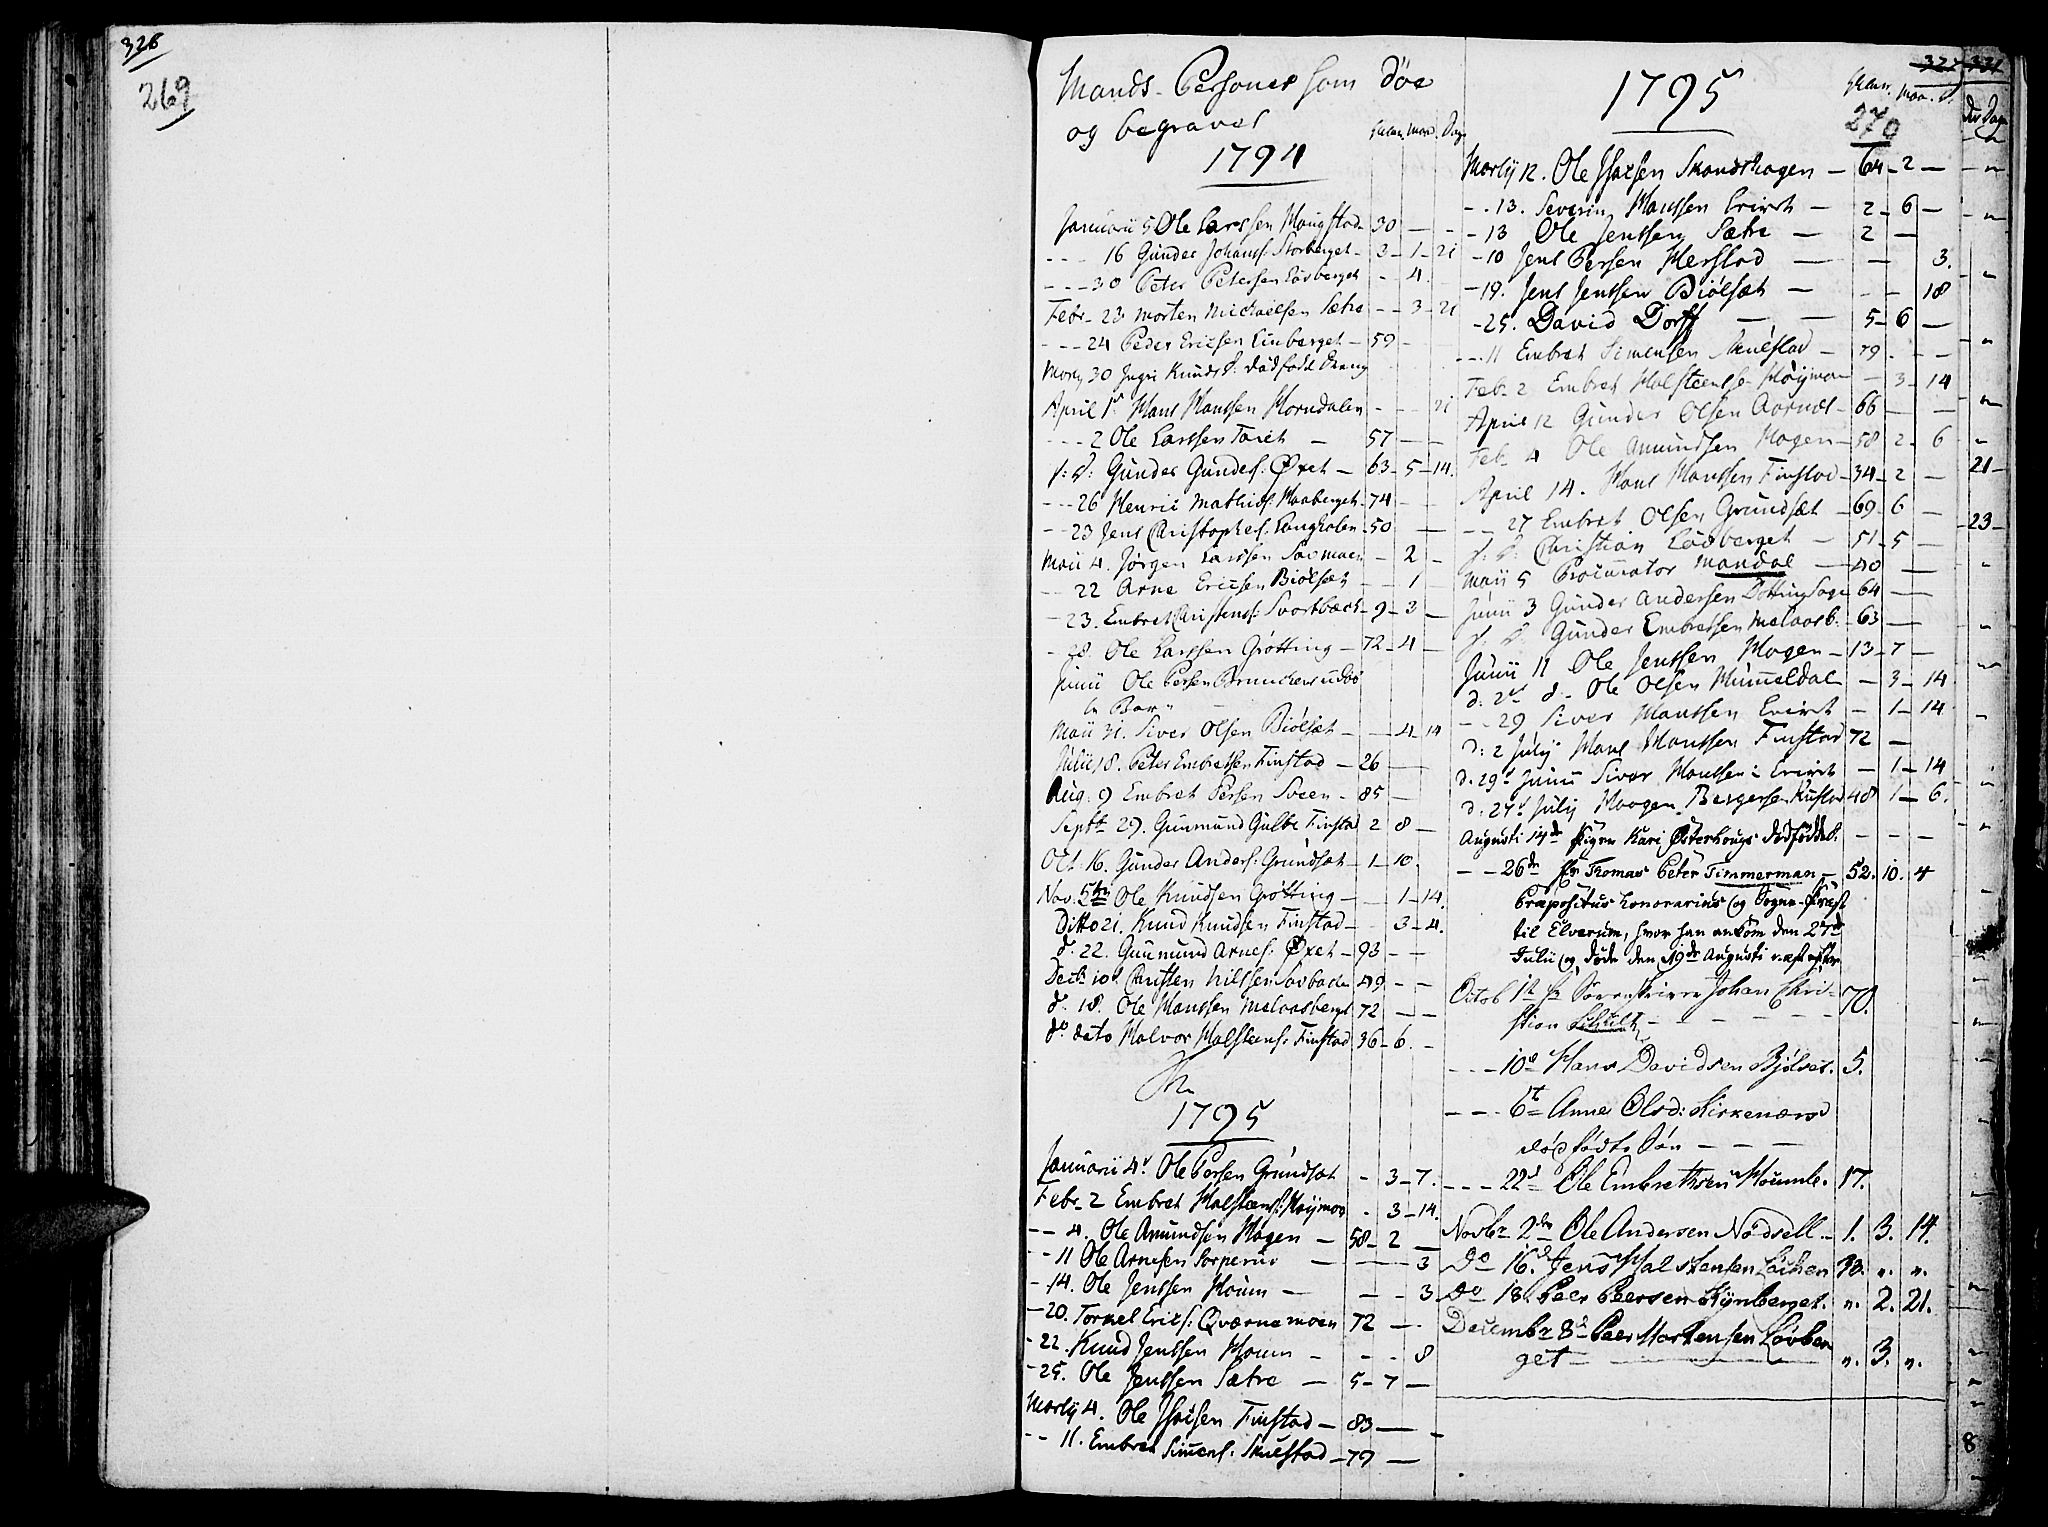 328
269
Mands-Personer som døe
og begravet
Aar. Maan. Dag
1794
Januarii 5 Ole Larssen Haugstad 30 — —
- - - 16 Gunder Johanss: Storberget - 3 - 1 - 21
- - - 30 Peter Petersen Løvberget - 4
Febr. 23 Morten Michaelsen Sætre - - 3 - 21
- - - 24 Peder Ericsen Linberget - 59
Marty 30 Ingri Knudsd: dødfødt Dreng
April 1 Hans Hanssen Horndalen - - 21
- - - 2 Ole Larssen 57 — —
d: d: Gunder Gunders: Øxet - 63 - 5 - 14.
- - - 26 Henric Mathies: 74 -
- - 23 Jens Christophes: 50 —
Maii 4. Jørgen Larssen - 2 -
- - 22 Arne Ericsen Biølset - 1 -
- 23. Embret Christens: Svartbæck - 9 - 3 -
- 28. Ole Larssen Grøtting - 72 - 4 -
Junii Ole Persen
Maii 31. Siver Olsen Biølset - - 4 - 14
Julii 18. Peter Embretsen Finstad - 26 —
Aug. 9 Embret Persen Sveen - 85 —
Septb 29. Gunmund Gulbr Finstad 2 8 —
Oct. 16. Gunder Anders: Grundset - 1 - 10.
Nov. 5 Ole Knudsen Grøtting - - 1 - 14.
Ditto 21. Knud Knudsen Finstad - - 3 - 4.
d. 22. Gunmund Arnes: Øxet - 93 - -
Decb 10 Christen Nilssen 49 - -
d. 18. Ole Hanssen Melaasberget 72 — —
do dato Halvor Halsteens: Finstad 36 - 6. -
1795
Januarii 4 Ole Persen Grundset - 3 - 7.
Febr. 2 Embret Halsteens: Møymoe - 3 - 14.
- - 4. Ole Amundsen Hagen - 58 - 2 —
- - 11 Ole Arnesen Sorperud — — 3
- 14. Ole Jenssen Houm — - - 3
- 20. Torkel Erics: Qværnemoen 72 —
- 22. Knud Jenssen Houm - - - 8
- 25. Ole Jenssen Sætre — 5 - 7 —
Marty 4. Ole Isacsen Finstad - 83 — -
- - 11. Embret Simens: Skulstad - 79 —
327
1795
270
Marty 12. Ole Isacsen Strandskogen - 64 - 2 —
- . 13. Severin Hanssen - 2 - 6 —
- 13 Ole Jenssen Sætre — 2 —
- 10 Jens Persen Herstad — — 3.
- 19. Jens Jenssen Biølset — - - 18
- 25. David Dorff — — 5 - 6 —
- - 11 Embret Simensen Skulstad - 79 - - -
Feb. 2 Embret Halsteense Møymoe - 3 - 14
April 12 Gunder Olsen Aarnes - 66 — —
Feb. 4 Ole Amundsen Hagen - 58 2. 6
April 14. Hans Hanssen Finstad - 34 - 2 -
- - 27 Embret Olsen Grundset - 69 - 6 —
d: d: Christian Løvberget - 51 - 5 —
Maii 5 Procurator Mandal — 40 —
Junii 3 Gunder Andersen 64 —
d. d. Gunder Embretsen Melaasb. - 63 —
Junii 11 Ole Jenssen Hagen - 13 - 7 -
d. d. Ole Olsen Hummeldal - 3 - 14
- - 29 Siver Hanssen - 1 - 14
d: 2 July Hans Hanssen Finstad 72 —
d. 29 Junii Siver Hanssen - 1 - 14
d. 27 July Haagen Bergersen 48 1 - 6.
Augusti 14de Pigen Kari Østerhougs dødfødde B. - - -
- - 26de Hr Thomas Peter Timmerman - 52. 10. 4
Præpositus honorarius og Sogne-Præst
til Elverum, hvor han ankom den 27de
Julii og døde den 19de Augusti næst efter
Octob 1te Hr Sorenskriver Johan Chri- 70.
stian Schult - - -
- - - 10de Hans Davidsen Bjølset. 5.
- - - 6te Anne Olsd: Kirkenæss
dødfødte Søn - - -
- - - 22d Ole Embrethsen Houmb. 17.
Novbr 2den Ole Andersen Nødsell - 1. 3. 14.
Do 16d Jens Halstensen 90. ,, ,,
Do 18. Peer Peersen Kynberget. ,, 2. 21.
Decembr 8d Peer Mortensen Løvber
get — ,, 3. ,,
21
23
8